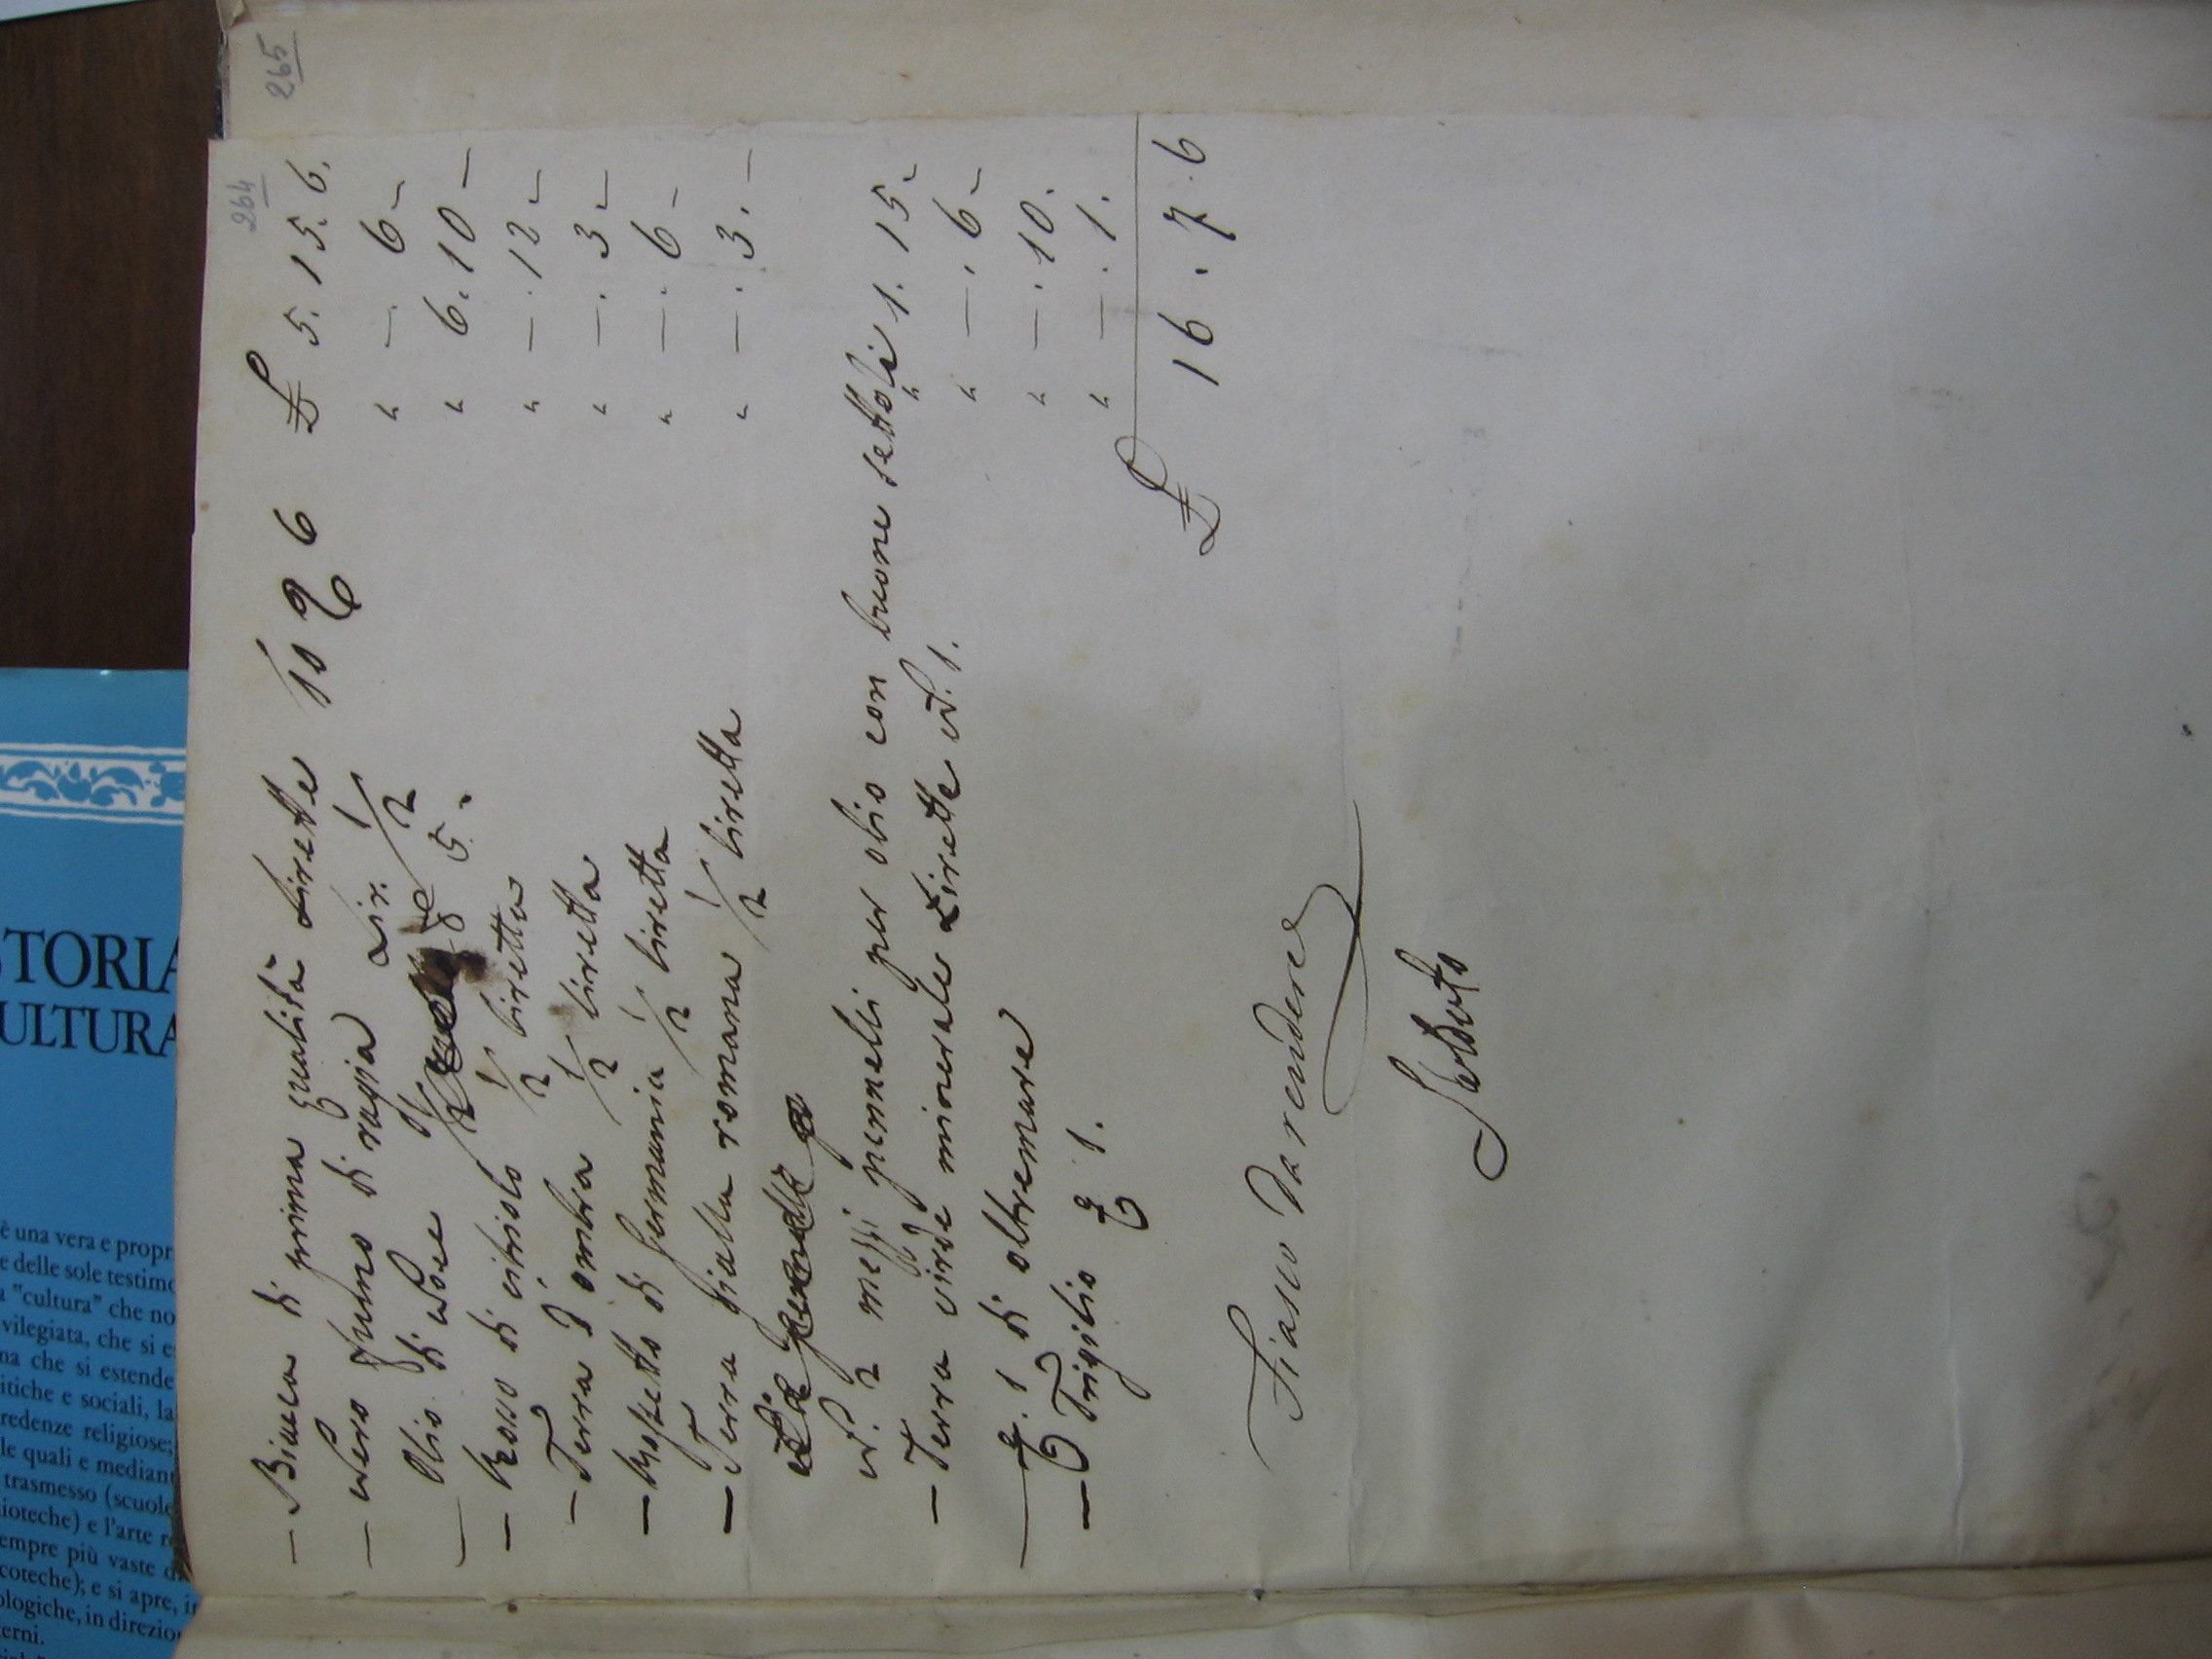 265
264
— Biacca di prima qualità Lirette 10 @ 6 £ 5. 15. 6.
— Nero fumo di ragia Lir. 1/2 " —. 6 —
— Olio di Noce 5. " 6. 10 —
— Rosso di vitriolo 1/2 liretta " —. 12 —
— Terra d'ombra 1/2 liretta " —. 3 —
— Rossetto di Germania 1/2 liretta " —. 6 —
— Terra gialla romana 1/2 liretta " —. 3. —
N. 2 mezzi pennelli per olio con buone settole " 1. 15 -
— Terra virde minerale Lirette N. 1. " —. 6 —
— 1 di oltremare " —. 10.
— Trigilio 1. " —. 1.
£ 16. 7. 6
Fiasco Da rendere
Saldato
STORIA
CULTURA
è una vera e propr
e delle sole testimo
a "cultura" che no
vilegiata, che si e
na che si estende
itiche e sociali, la
redenze religiose;
le quali e mediant
trasmesso (scuole
ioteche) e l'arte r
empre più vaste d
coteche); e si apre, i
ologiche, in direzio
erni.